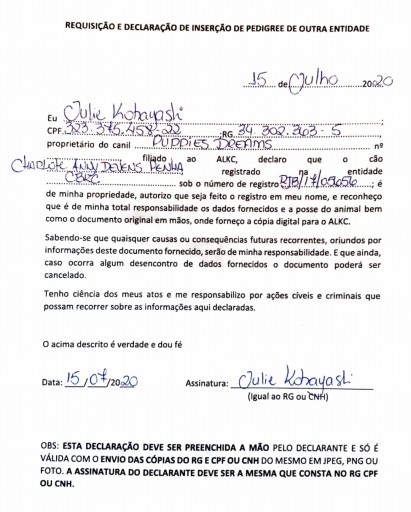 REQUISIÇÃO E DECLARAÇÃO DE INSERÇÃO DE PEDIGREE DE OUTRA ENTIDADE
15 de Julho 2020
Eu Julie Kobayashi ;
CPF. ;RG. 34.302.363-5 ;
proprietário do canil PUPPIES DREAMS nº
filiado ao ALKC, declaro que o cão
CHARLOTE ANN registrado na entidade
CBRC sob o número de registro ; é
de minha propriedade, autorizo que seja feito o registro em meu nome, e reconheço
que é de minha total responsabilidade os dados fornecidos e a posse do animal bem
como o documento original em mãos, onde forneço a cópia digital para o ALKC.
Sabendo-se que quaisquer causas ou consequências futuras recorrentes, oriundos por
informações deste documento fornecido, serão de minha responsabilidade. E que ainda,
caso ocorra algum desencontro de dados fornecidos o documento poderá ser
cancelado.
Tenho ciência dos meus atos e me responsabilizo por ações cíveis e criminais que
possam recorrer sobre as informações aqui declaradas.
O acima descrito é verdade e dou fé
Data: 15/07/2020 Assinatura: Julie Kobayashi
(Igual ao RG ou CNH)
OBS: ESTA DECLARAÇÃO DEVE SER PREENCHIDA A MÃO PELO DECLARANTE E SÓ É
VÁLIDA COM O ENVIO DAS CÓPIAS DO RG E CPF OU CNH DO MESMO EM JPEG, PNG OU
FOTO. A ASSINATURA DO DECLARANTE DEVE SER A MESMA QUE CONSTA NO RG CPF
OU CNH.